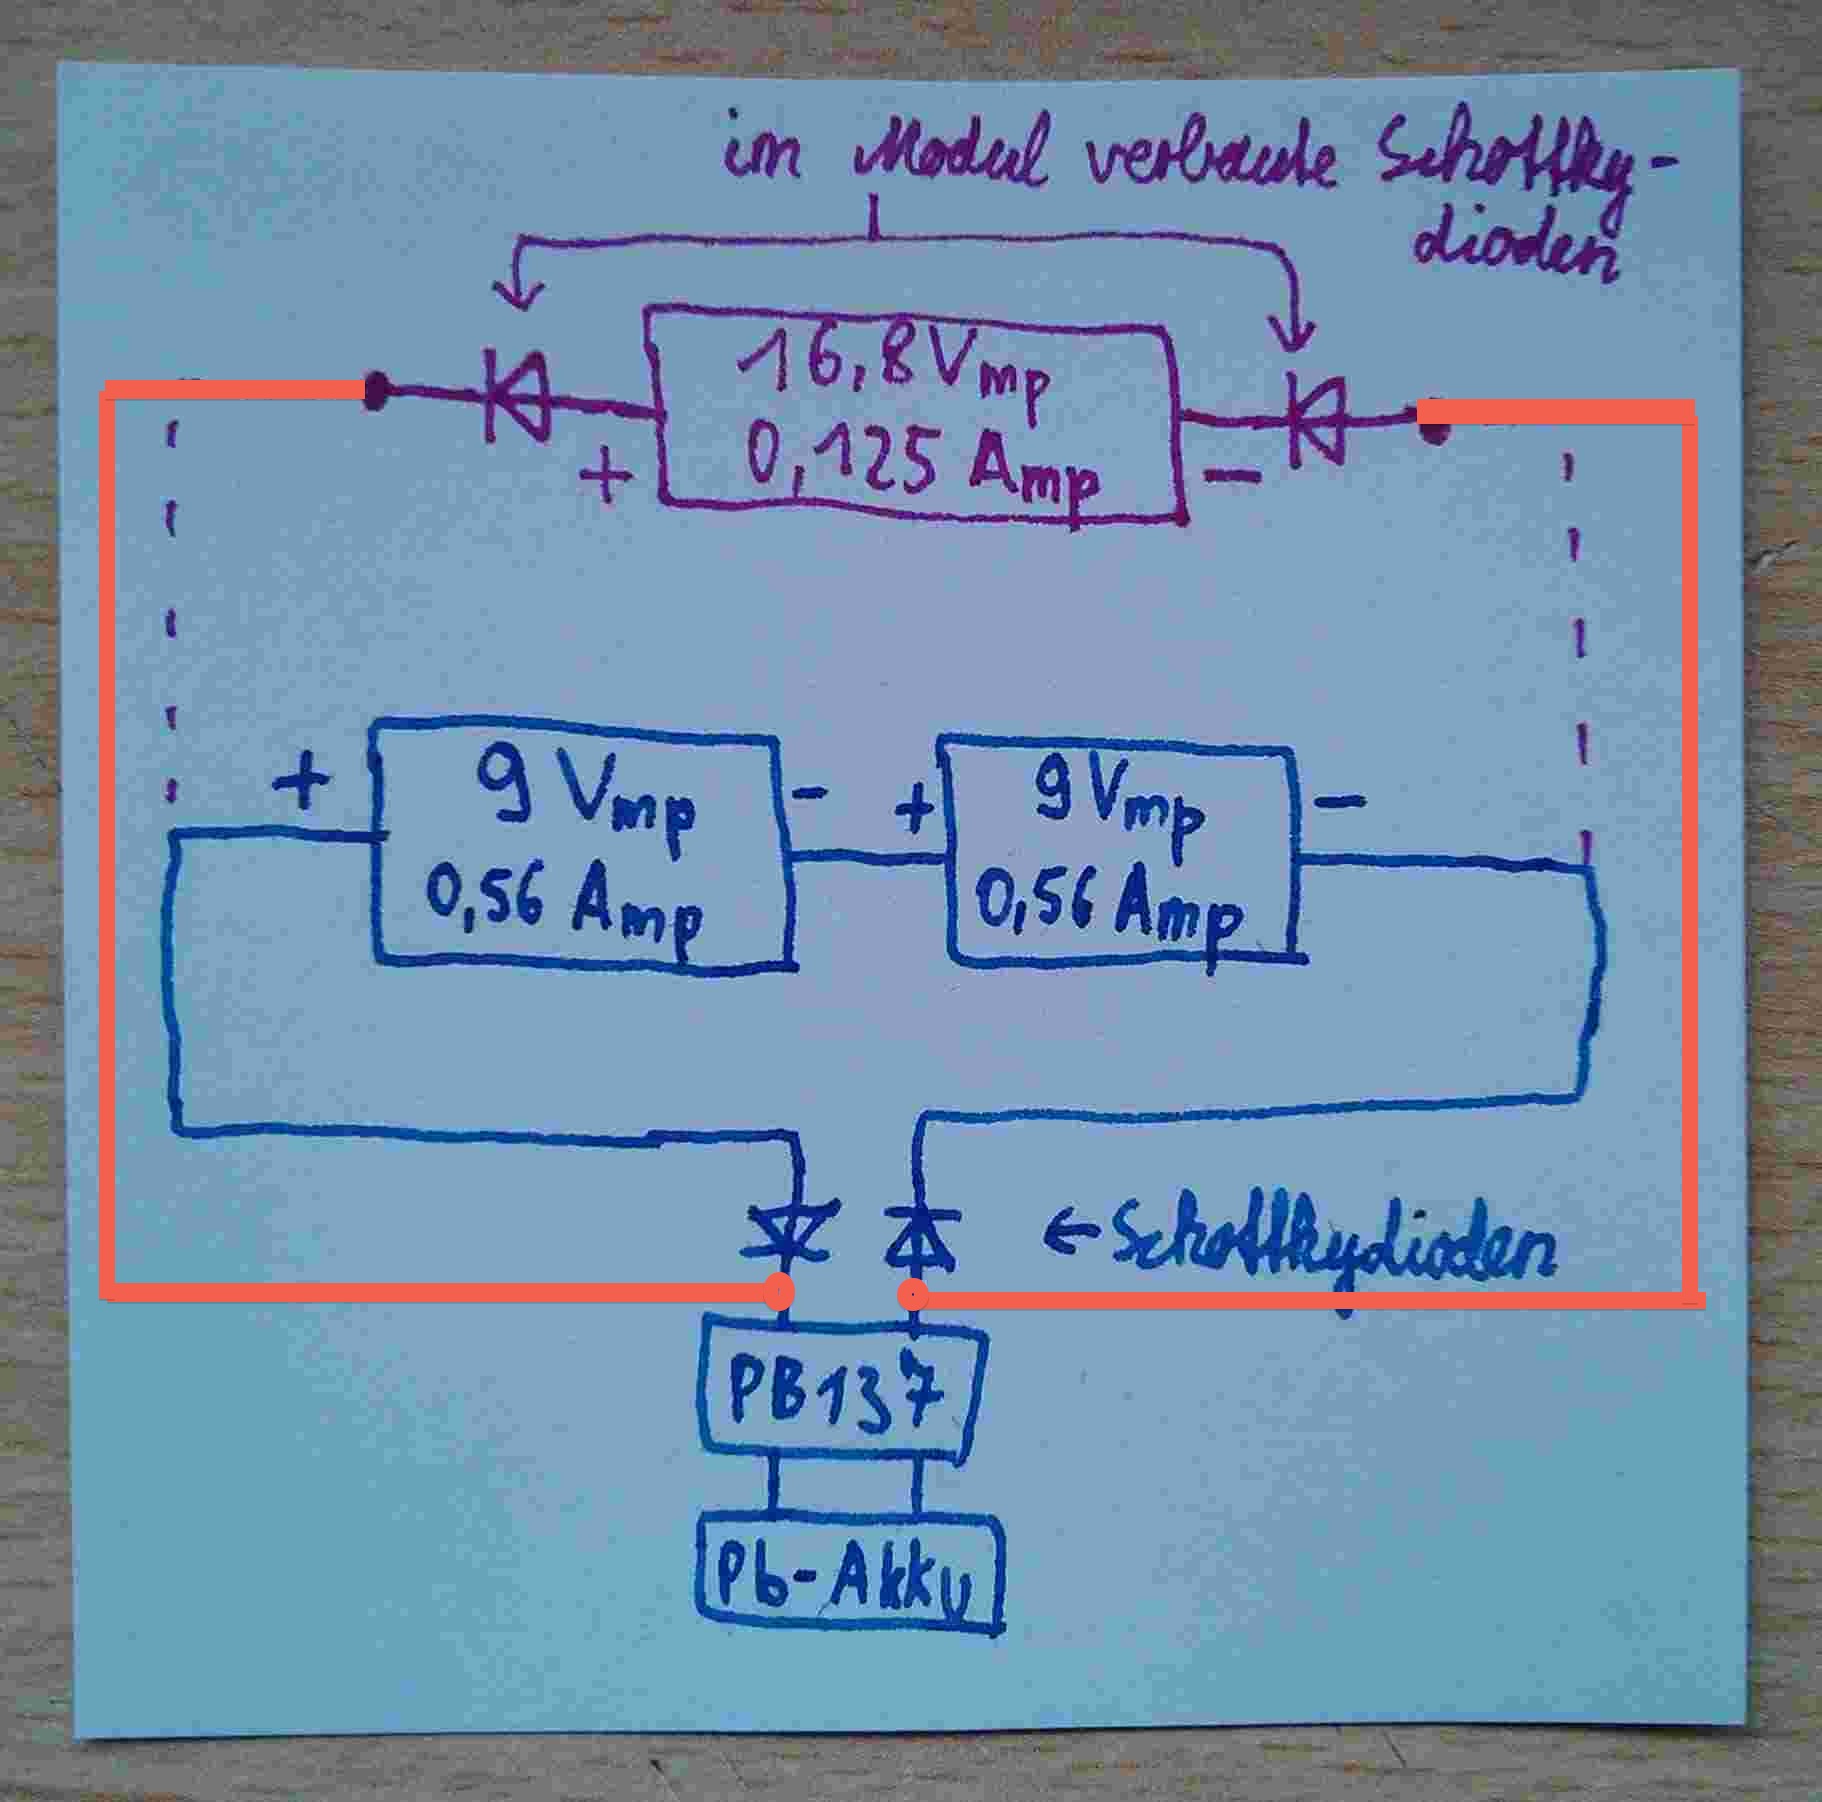 im Modul verbaute Schottky-
dioden
16,8 Vmp
0,125 Amp
+
-
+
9 Vmp
0,56 Amp
-
+
9 Vmp
0,56 Amp
-
← Schottkydioden
PB137
Pb-Akku